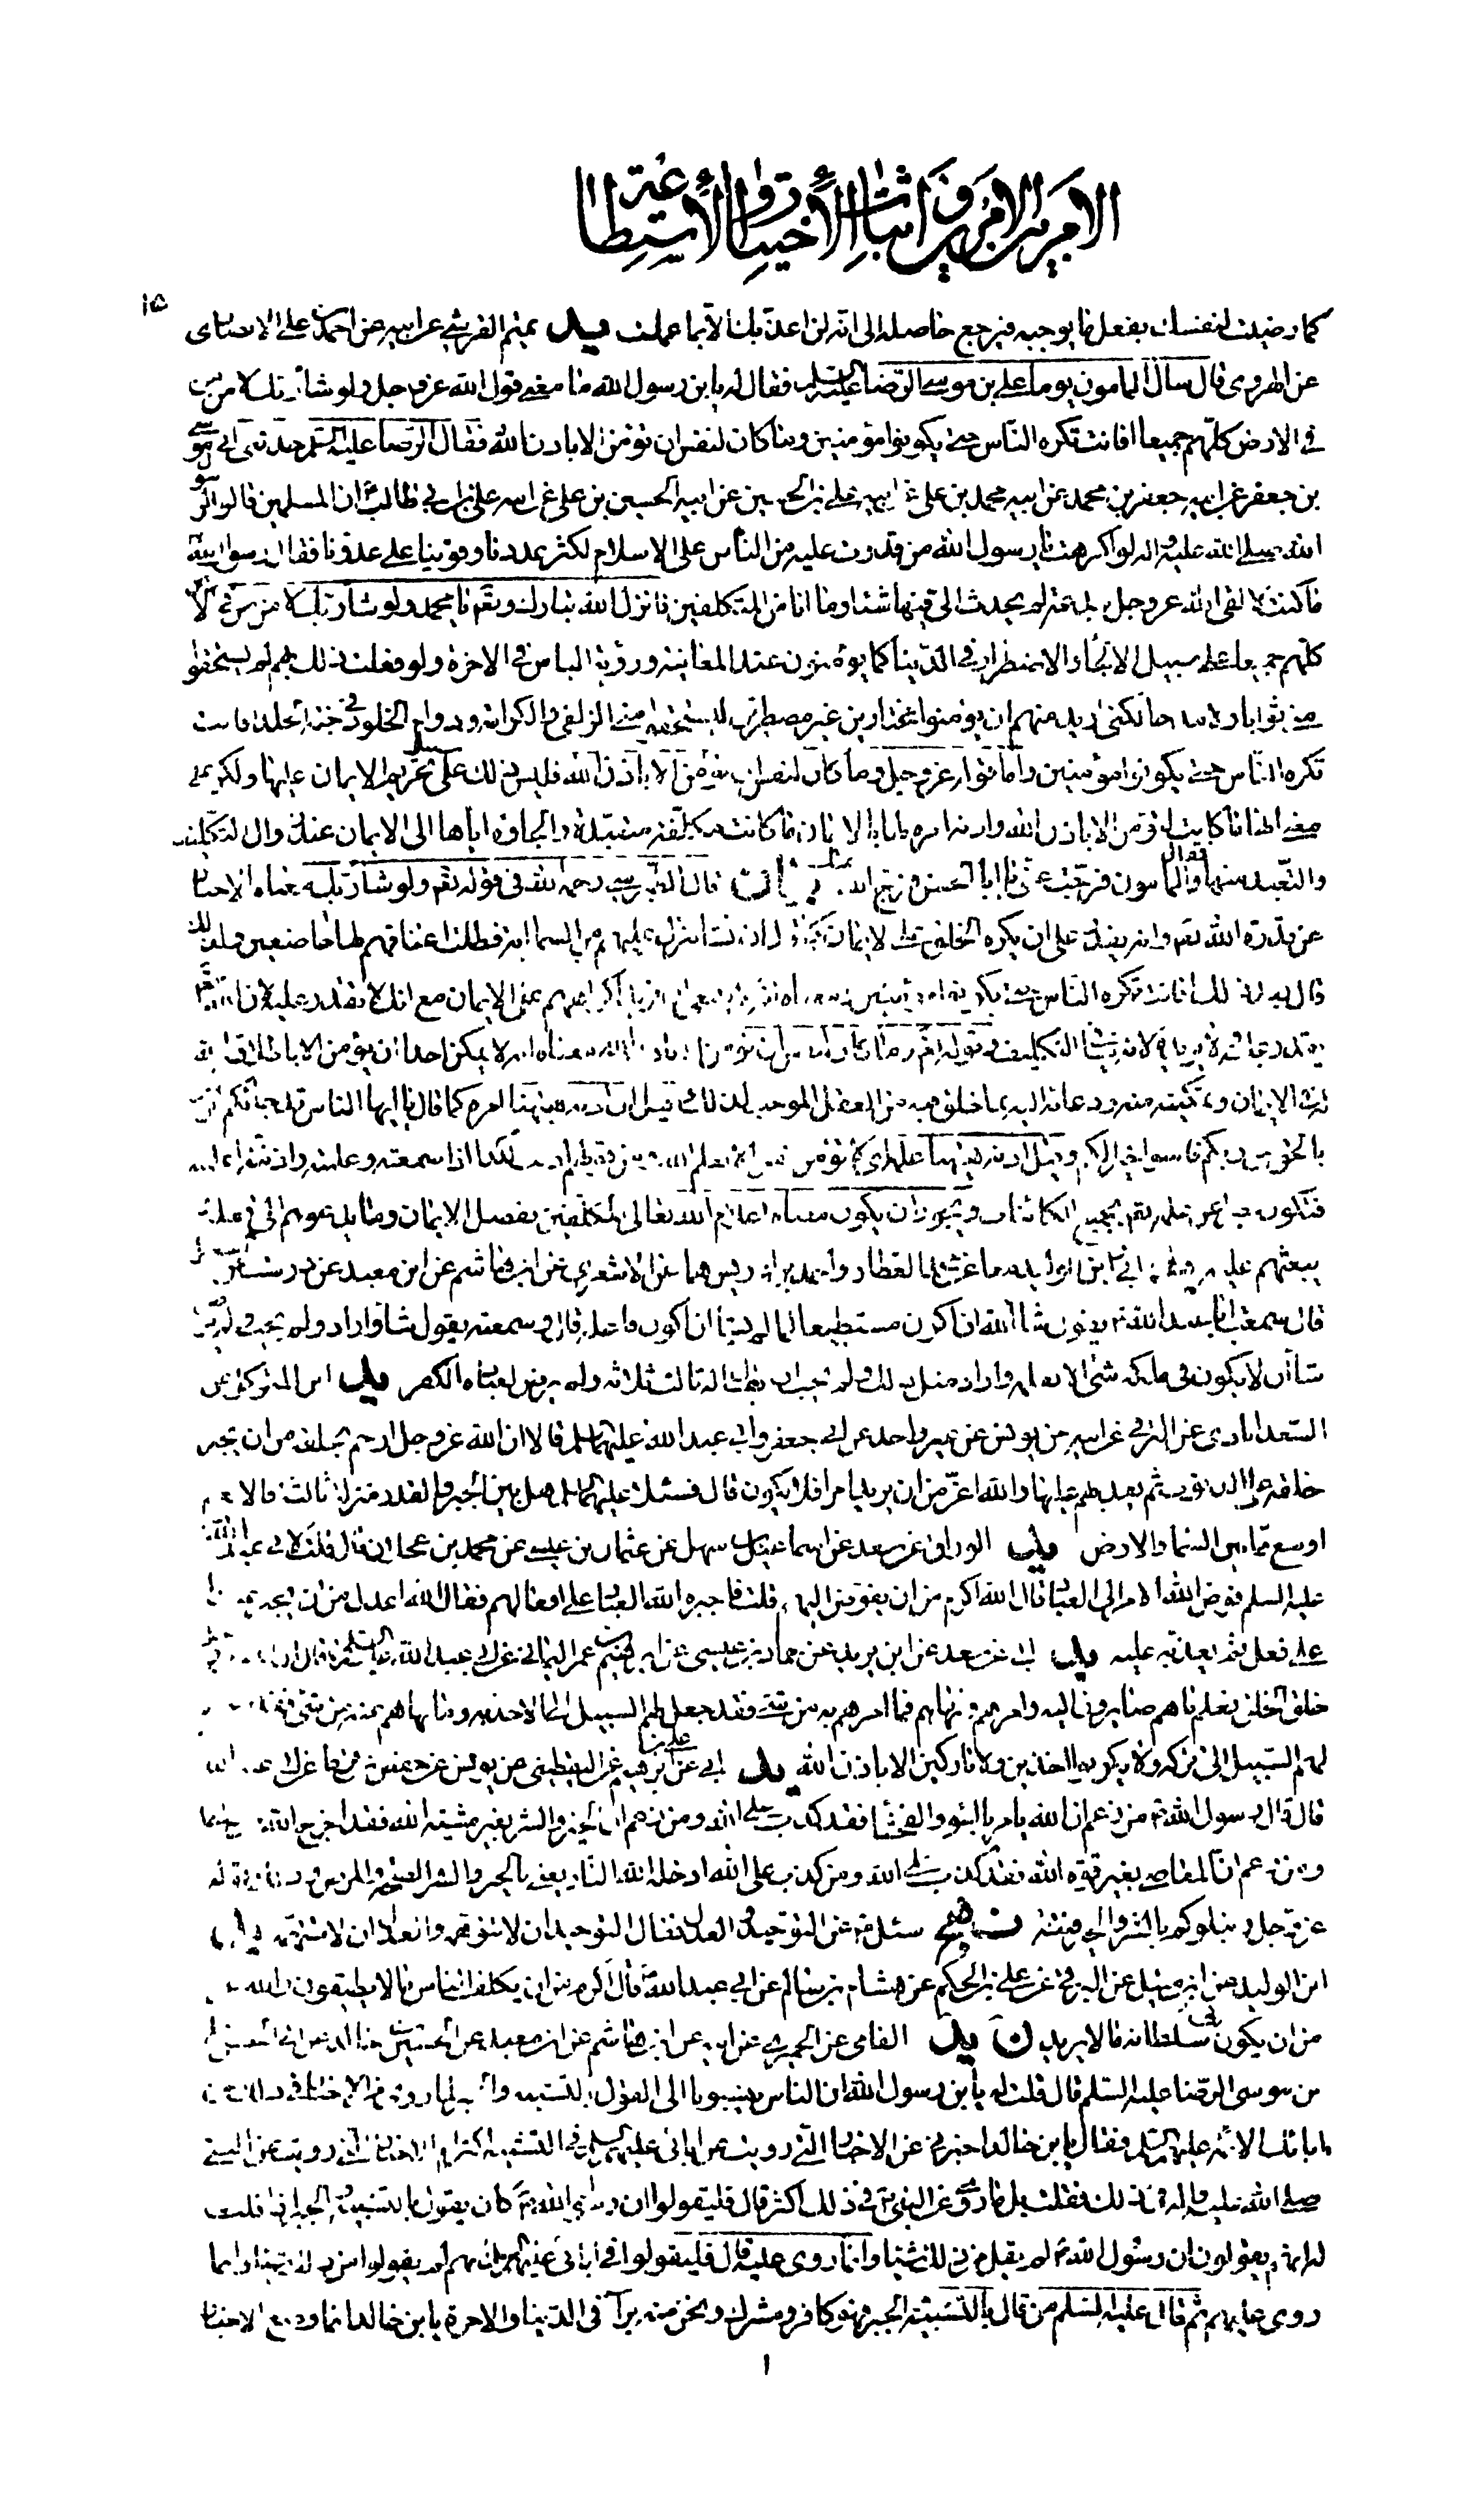 الامر بين الامرين و اثبات الأختيار و الأستطاعة
١٥
كما رضيت لنفسك بفعل ما يوجبه فيرجع حاصله الى انه لن اعذبك الا بما عملت يد تميم القرشي عن ابيه عن احمد بن علي الانصاري
عن الهروي قال سال المامون يوما علي بن موسى الرضا عليه السلم فقال له يا بن رسول الله ما معنى قول الله عز و جل و لو شاء ربك لامن من
في الارض كلهم جميعا افانت تكره الناس حتى يكونوا مؤمنين و ما كان لنفس ان تؤمن الا باذن الله فقال الرضا عليه السلم حدثني ابي موسى
بن جعفر عن ابيه جعفر بن محمد عن ابيه محمد بن علي عن ابيه علي بن الحسين عن ابيه الحسين بن علي عن ابيه علي بن ابي طالب ان المسلمين قالوا لرسول
الله صلى الله عليه و اله لو اكرهت يا رسول الله من قدرت عليه من الناس على الاسلام لكثر عددنا و قوينا على عدونا فقال رسول الله
ما كنت لالقى الله عز و جل ببدعة لم يحدث الي فيها شيئا و ما انا من المتكلفين فانزل الله تبارك و تعم يا محمد و لو شاء ربك لامن من في الارض
كلهم جميعا على سبيل الالجاء و الاضطرار في الدنيا كما يؤمنون عند المعاينة و رؤية الباس في الاخرة و لو فعلت ذلك بهم لم يستحقوا
مني ثوابا و لا مدحا لكني اريد منهم ان يؤمنوا مختارين غير مضطرين ليستحقوا مني الزلفى و الكرامة و دوام الخلود في جنة الخلد افانت
تكره الناس حتى يكونوا مؤمنين و اما قوله عز و جل و ما كان لنفس ان تؤمن الا باذن الله فليس ذلك على سبيل تحريم الايمان عليها و لكن على
معنى انها ما كانت لتؤمن الا باذن الله و اذنه امره لها بالايمان ما كانت مكلفة متعبدة و الجاؤه اياها الى الايمان عند زوال التكليف
و التعبد عنها فقال المامون فرجت عني يا ابا الحسن فرج الله عنك قال الطبرسي رحمه الله في قوله تعم و لو شاء ربك معناه الاخبار
عن قدرة الله تعم و انه يقدر على ان يكره الخلق على الايمان
قال بعد ذلك افانت تكره الناس حتى يكونوا مؤمنين
الايمان و تمكينه منه و دعائه اليه بما خلق فيه من العقل الموجب لذلك و قيل ان اذنه هيهنا امره كما قال يا ايها الناس قد جاءكم الرسول
بالحق من ربكم فامنوا خيرا لكم و قيل ان اذنه هيهنا علمه
و يجوز ان يكون معناه اعلام الله تعالى المكلفين بفضل الايمان و ما يدعوهم الى فعله
يد ابي و ابن الوليد معا عن محمد العطار و احمد بن ادريس معا عن الاشعري عن ابن هاشم عن ابن معبد عن درست
قال سمعت ابا عبد الله يقول شاء الله ان اكون مستطيعا لما لم يشا ان اكون فاعله قال و سمعته يقول شاء و اراد و لم يحب و لم يرض
شاء ان لا يكون في ملكه شئ الا بعلمه و اراد مثل ذلك و لم يحب ان يقال له ثالث ثلاثة و لم يرض لعباده الكفر يد ابن المتوكل عن
السعدابادي عن البرقي عن ابيه عن يونس عن غير واحد عن ابي جعفر و ابي عبد الله عليهما السلم قالا ان الله عز و جل ارحم بخلقه من ان يجبر
خلقه على الذنوب ثم يعذبهم عليها و الله اعز من ان يريد امرا فلا يكون قال فسئلا عليهما السلم هل بين الجبر و القدر منزلة ثالثة قالا نعم
اوسع مما بين السماء و الارض يد الوراق عن سعد عن اسماعيل بن سهل عن عثمان بن عيسى عن محمد بن عجلان قال قلت لابي عبد الله
عليه السلم فوض الله الامر الى العباد قال الله اكرم من ان يفوض اليهم قلت فاجبر الله العباد على افعالهم فقال الله اعدل من ان يجبر عبدا
على فعل ثم يعذبه عليه يد ابي عن سعد عن ابن يزيد عن حماد بن عيسى عن ابراهيم بن عمر اليماني عن ابي عبد الله عليه السلم قال ان الله
خلق الخلق فعلم ما هم صائرون اليه و امرهم و نهاهم فما امرهم به من شئ فقد جعل لهم السبيل الى الاخذ به و ما نهاهم عنه من شئ فقد جعل
لهم السبيل الى تركه و لا يكونون اخذين و لا تاركين الا باذن الله يد ابي عن علي بن ابرهيم عن اليقطيني عن يونس عن حفص بن قرط عن ابي عبد الله
قال قال رسول الله من زعم ان الله يامر بالسوء و الفحشاء فقد كذب على الله و من زعم ان الخير و الشر بغير مشية الله فقد اخرج الله من سلطانه
و من زعم ان المعاصي بغير قوة الله فقد كذب على الله و من كذب على الله ادخله الله النار يعني بالخير و الشر الصحة و المرض و ذلك قوله
عز و جل و نبلوكم بالشر و الخير فتنة نهج سئل عن التوحيد و العدل فقال التوحيد ان لا تتوهمه و العدل ان لا تتهمه يد
ابن الوليد عن ابن متيل عن البرقي عن علي بن الحكم عن هشام بن سالم عن ابي عبد الله قال الله اكرم من ان يكلف الناس ما لا يطيقون و الله اعز
من ان يكون في سلطانه ما لا يريد ن يد الفامي عن الحميري عن ابيه عن ابن هاشم عن ابن معبد عن الحسين بن خالد عن ابي الحسن علي
بن موسى الرضا عليه السلم قال قلت له يا بن رسول الله ان الناس ينسبونا الى القول بالتشبيه و الجبر لما روي من الاخبار في ذلك عن
ابائك الائمة عليهم السلم فقال يا بن خالد اخبرني عن الاخبار التي رويت عن ابائي عليهم السلم في التشبيه اكثر ام الاخبار التي رويت عن النبي
صلى الله عليه و اله في ذلك فقلت بل ما روي عن النبي في ذلك اكثر قال فليقولوا ان رسول الله كان يقول بالتشبيه و الجبر اذا قلت
له انهم يقولون ان رسول الله لم يقل من ذلك شيئا و انما روي عليه قال فليقولوا في ابائي عليهم السلم انهم لم يقولوا من ذلك شيئا و انما
روي عليهم ثم قال عليه السلم من قال بالتشبيه و الجبر فهو كافر و مشرك و نحن منه براء في الدنيا و الاخرة يا بن خالد انما وضع الاخبار
١